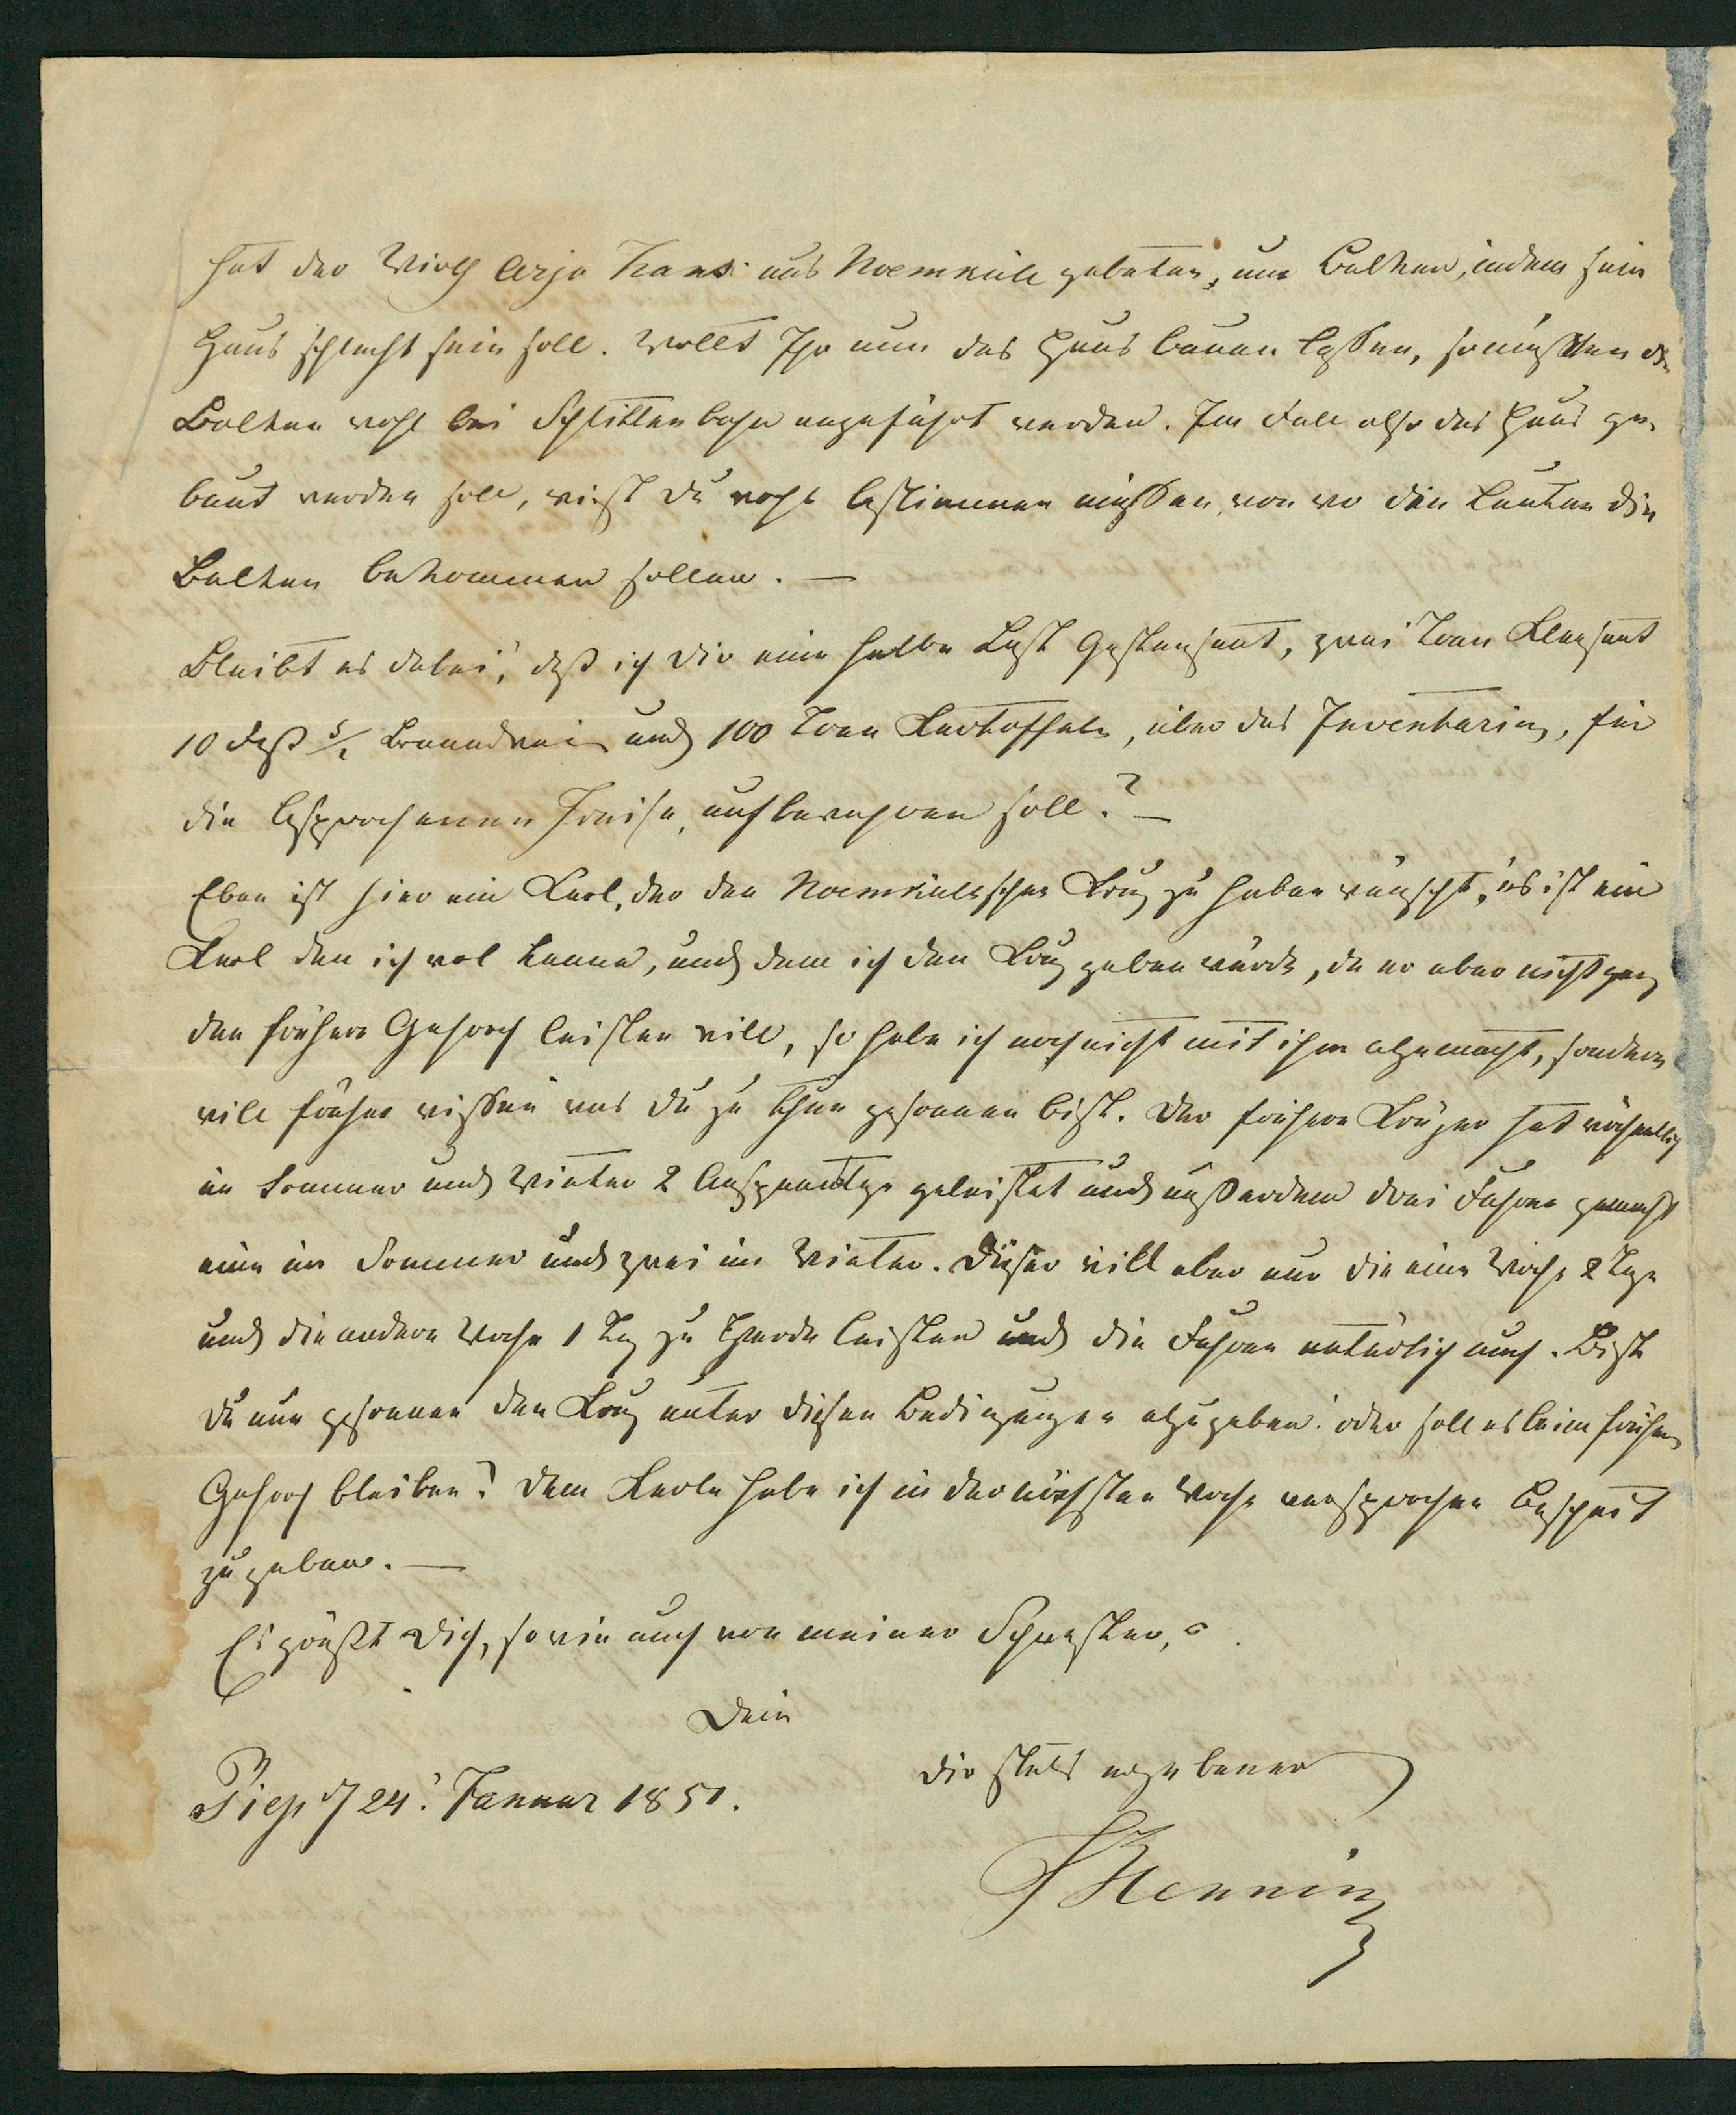 hat der Wirth Arjo Hans aus Noemküll gebeten, um Balken, indem sein
Haus schlecht sein soll. Wollt Ihr nun das Haus bauen lassen, so müßten die
Balken wohl bei Schlittenbahn angeführt werden. Im Fall also das Haus ge-
baut werden soll, wirst Du wohl bestimmen müssen, von wo die Leute die
Balken bekommen sollen. —
Bleibt es dabei, daß ich Dir eine halbe Last Gerstensaat, zwei Loen Kleesaat
10 Faß Brandwein und 100 Loen Kartoffeln, über das Inventarium, für
die besprochenen Preise, aufbewahren soll? —
Eben ist hier ein Kerl, der den Noemküllschen Krug zu haben wünscht, es ist ein
Kerl den ich wol kenne, und dem ich den Krug geben würde, da er aber nicht ganz
den frühern Gehorch leisten will, so habe ich noch nicht mit ihm abgemacht, sondern
will früher wissen was Du zu thun gesonnen bist. Der frühere Krüger hat wöchentlich
im Sommer und Winter 2 Anspanntage geleistet und außerdem drei Fuhren gemacht
eine im Sommer und zwei im Winter. Dieser will aber nur die eine Woche 2 Tage
und die andere Woche 1 Tag zu Pferde leisten und die Fuhren natürlich auch. Bist
Du nun gesonnen den Krug unter diesen Bedingungen abzugeben? oder soll es beim frühern
Gehorch bleiben? Dem Kerle habe ich in der nächsten Woche versprochen Bescheid
zu geben. —
Es grüßt Dich, so wie auch von meiner Schwester,
Dein
Dir stets ergebener
Piep d 24. Januar 1851.
Hennin